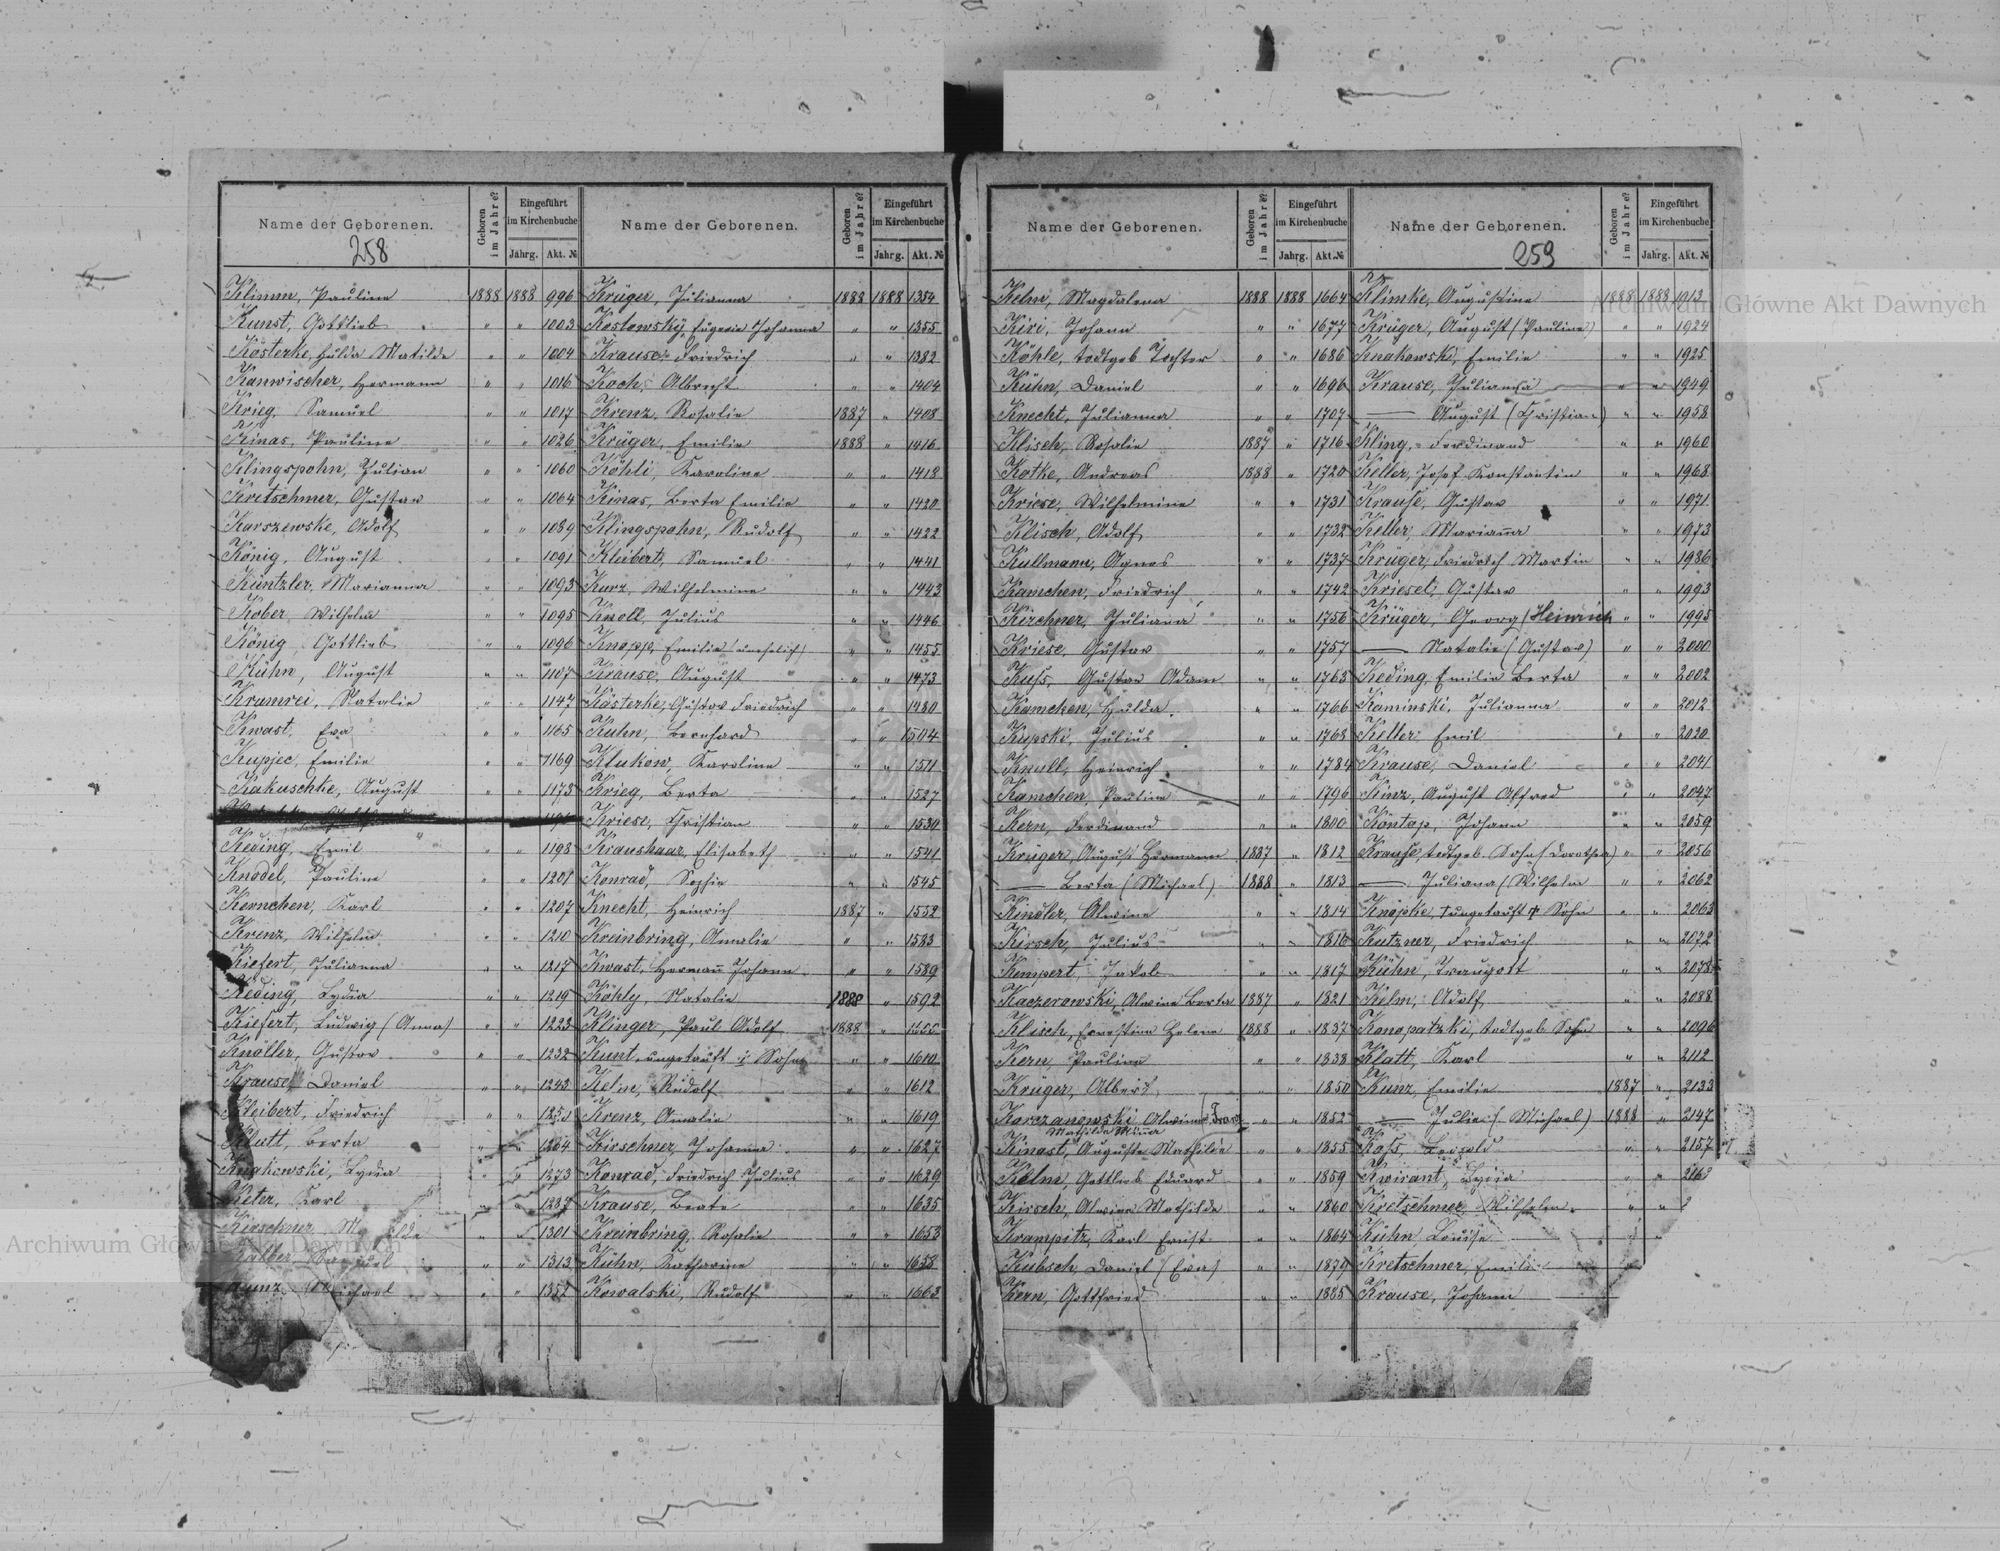 Name der Geborenen.
258
Geboren im Jahre?
Eingeführt im Kirchenbuche
Jahrg. Akt. №
Klimm, Pauline 1888 1888 996
Kunst, Gottlieb " " 1003
Kösterke, Hulda Matilde " " 1004
Kanwischer, Hermann " " 1016
Krieg, Samuel " " 1017
Kinas, Pauline " " 1026
Klingspohn, Julian " " 1060
Kretschmer, Gustav " " 1064
Karszewske, Adolf " " 1089
König, August " " 1091
Küntzler, Marianna " " 1093
Kober, Wilhelm " " 1095
König, Gottlieb " " 1096
Kühn, August " " 1107
Krumrei, Natalie " " 1147
Kwast, Eva " " 1165
Kupjec, Emilie " " 1169
Kakuschke, August " " 1173
Keding, Emil " " 1198
Knodel, Pauline " " 1201
Kernchen, Karl " " 1207
Krenz, Wilhelm " " 1210
Kiefert, Julianna " " 1217
Keding, Lydia " " 1219
Kiefert, Ludwig (Anna) " " 1223
Knöller, Gustav " " 1232
Krause, Daniel " " 1243
Kleibert, Friedrich " "
Klutt, Berta " " 1264
Knakowski, Lydia " " 1273
Keter, Karl " " 1287
Kirschner, " " 1301
Samuel " " 1313
Kunz, Michael " " 1352
Name der Geborenen.
Geboren im Jahre?
Eingeführt im Kirchenbuche
Jahrg. Akt. №
Krüger, Julianna 1888 1888 1354
Koslowsky, Eugenie Johanna " " 1355
Krause, Friedrich " " 1382
Koch, Albrecht " " 1404
Krenz, Rosalie 1887 " 1408
Krüger, Emilie 1888 " 1416
Köhli, Karoline " " 1418
Kinas, Berta Emilie " " 1420
Klingspohn, Rudolf " " 1422
Kleibert, Samuel " " 1441
Kurz, Wilhelmine " " 1443
Knoll, Julius " " 1446
Knopp, Emilie (unehelich) " " 1455
Krause, August " " 1473
Kösterke, Gustav Friedrich " " 1480
Kuhn, Bernhard " " 1504
Klukow, Karoline " " 1511
Krieg, Berta " " 1527
Kriese, Christian " " 1530
Kraushaar, Elisabeth " " 1541
Konrad, Sophie " " 1545
Knecht, Heinrich 1887 " 1552
Kreinbring, Amalie " " 1583
Kwast, Hermañ Johann " " 1589
Köhly, Natalie 1888 " 1592
Klinger, Paul Adolf 1888 "
Kunt, ungetauft Sohn " " 1610
Kelm, Rudolf " " 1612
Krenz, Amalie " " 1619
Kirschner, Johanna " " 1627
Konrad, Friedrich Julius " " 1629
Krause, Beate " " 1635
Kreinbring, Rosalie " " 1653
Kühn, Katharine " " 1658
Kowalski, Rudolf " " 1663
Name der Geborenen.
Geboren im Jahre?
Eingeführt im Kirchenbuche
Jahrg. Akt. №
Kelm, Magdalena 1888 1888 1664
Kiri, Johann " " 1677
Köhle, todtgeb. Tochter " " 1686
Kühn, Daniel " " 1696
Knecht, Julianna " " 1707
Klisch, Rosalie 1887 " 1716
Kotke, Andreas 1888 " 1720
Kriese, Wilhelmine " " 1731
Klisch, Adolf " " 1732
Kullmann, Agnes " " 1737
Kamchen, Friedrich " " 1742
Kirchner, Juliana " " 1756
Kriese, Gustav " " 1757
Kuß, Gustav Adam " " 1763
Kamchen, Hulda " " 1766
Kupski, Julius " " 1768
Knull, Heinrich " " 1784
Kamchen, Pauline " " 1796
Kern, Ferdinand " " 1800
Krüger, August Hermann 1887 " 1812
— Berta (Michael) 1888 " 1813
Kindler, Alwine " " 1814
Kirsch, Julius " " 1816
Kempert, Jakob " " 1817
Kaczerowski, Alwine Berta 1887 " 1821
Klisch, Ernestine Helene 1888 " 1837
Kern, Pauline " " 1838
Krüger, Albert " " 1850
Korczanowski Alwine " " 1852
Mathilde Minna
Kinast, Auguste Mathilde " " 1855
Kelm, Gottlieb Eduard " " 1859
Kirsch, Alwine Mathilde " " 1860
Krampitz, Karl Ernst " " 1864
Kubsch, Daniel (Eva) " " 1879
Kern, Gottfried " " 1885
Name der Geborenen.
259
Geboren im Jahre?
Eingeführt im Kirchenbuche
Jahrg. Akt. №
Klimke, Augustine 1888 1888 1913
Krüger, August (Pauline) " " 1924
Knakowski, Emilie " " 1925
Krause, Julianna " " 1949
— August (Christian) " " 1958
Kling, Ferdinand " " 1960
Keller, Josef Konstantin " " 1968
Krauße, Gustav " " 1971
Keller, Mariañna " " 1973
Krüger, Friedrich Martin " " 1986
Kriesel, Gustav " " 1993
Krüger, Georg (Heinrich " " 1995
— Natalie (Gustav) " " 2000
Keding, Emilie Berta " " 2002
Kaminski, Julianna " " 2012
Keller, Emil " " 2020
Krause, Daniel " " 2041
Kinz, August Alfred " " 2047
Köntop, Johann " " 2059
Krauße, todtgeb. Sohn (Dorothea) " " 2056
— Juliana (Wilhelm " " 2062
Knopke, ungetauft † Sohn " " 2063
Kutzner, Friedrich " " 2072
Kühn, Traugott " " 2078
Kelm, Adolf " " 2088
Konopatzki, todtgeb. Sohn " " 2096
Klatt, Karl " " 2112
Kunz, Emilie 1887 " 2133
— Julie (Michael) 1888 " 2147
Koß, Leopold " " 2157
Kwirant, Lydia " "
Kretschmer, Wilhelm " "
Kühn Louise "
Kretschmer, Emilie
Krause, Johann
Archiwum Główne Akt Dawnych
Archiwum Główne Akt Dawnych